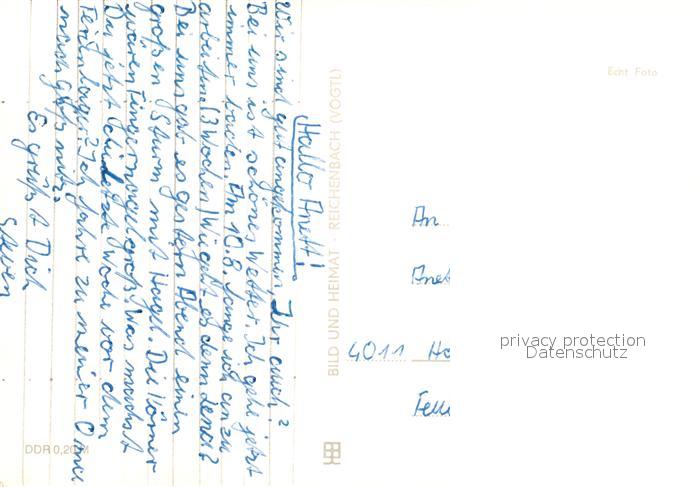 Hallo Anett!
Wir sind gut angekommen, Ihr auch?
Bei uns ist schönes Wetter. Ich gehe jetzt
immer baden. Am 10.8. fange ich an zu
arbeiten (3 Wochen) Wie geht es denn Lena?
Bei uns gab es gestern Abend einen
großen Sturm mit Hagel. Die Körner
waren Fingernagelgroß! Was machst
Du jetzt die letzte Woche vor dem
Ferienlager? Ich fahre zu meiner Oma
nach
Es grüßt Dich
Steven
BILD UND HEIMAT · REICHENBACH (VOGTL)
DDR 0,20 M
Echt Foto
An
Anet
4011 Ha
privacy protection
Datenschutz